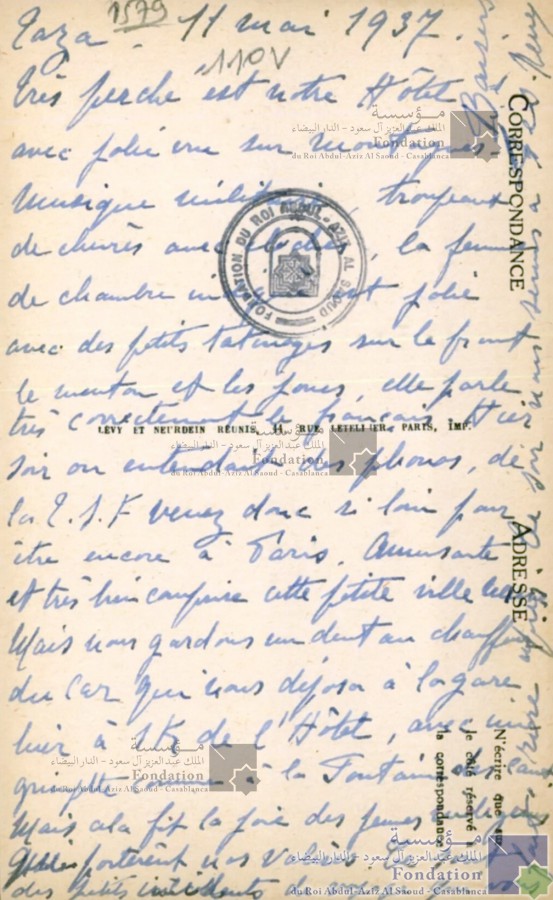 1579
Taza - 11 mai 1937.
110V
Très perché est notre Hôtel
avec jolie vue sur montagnes.
Musique militaire, troupeaux
de chèvres avec cloches, la femme
de chambre est jolie
avec des petits tatouages sur le front
le menton et les joues, elle parle
très correctement le français. Hier
LÉVY ET NEURDEIN RÉUNIS, 44, RUE LETELLIER, PARIS, IMP.
soir on entendait des phonos, de
la T.S.F venez donc si loin pour
être encore à Paris. Amusante
et très bien comprise cette petite ville
Mais nous gardons un dent au chauffeur
du car qui nous déposa à la gare
hier à 1K de l'Hôtel, avec
comme à la Fontaine
Mais cela fit la joie des jeunes indigènes
Qui portèrent nos valises
des petits incidents
Baisers
CORRESPONDANCE
ADRESSE
N'écrire que sur
le côté réservé à
la correspondance
FONDATION DU ROI ABDUL-AZIZ AL SAOUD
مؤسسة
الملك عبد العزيز آل سعود - الدار البيضاء
Fondation
du Roi Abdul-Aziz Al Saoud - Casablanca
مؤسسة
الملك عبد العزيز آل سعود - الدار البيضاء
Fondation
du Roi Abdul-Aziz Al Saoud - Casablanca
مؤسسة
الملك عبد العزيز آل سعود - الدار البيضاء
Fondation
du Roi Abdul-Aziz Al Saoud - Casablanca
مؤسسة
الملك عبد العزيز آل سعود - الدار البيضاء
Fondation
du Roi Abdul-Aziz Al Saoud - Casablanca